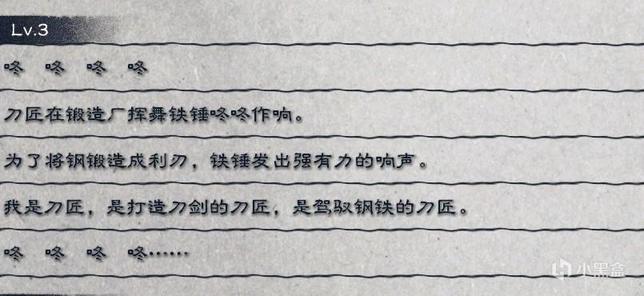 Lv.3
咚 咚 咚 咚
刀匠在锻造厂挥舞铁锤咚咚作响。
为了将钢锻造成利刃，铁锤发出强有力的响声。
我是刀匠，是打造刀剑的刀匠，是驾驭钢铁的刀匠。
咚 咚 咚 咚……
小黑盒